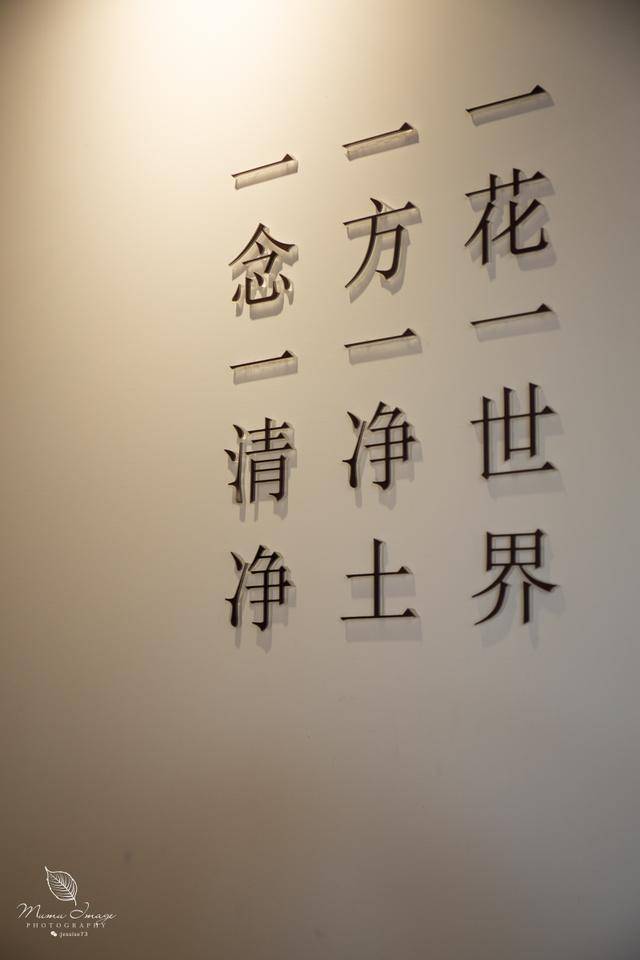 一花一世界
一方一净土
一念一清净
Mumu Image
PHOTOGRAPHY
jessise73